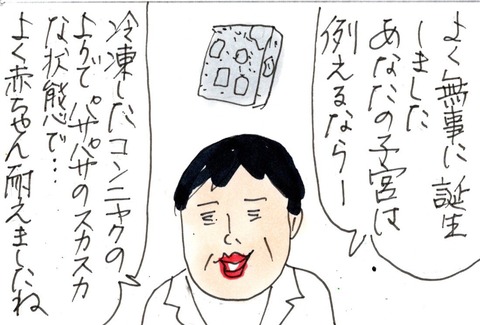 よく無事に誕生
しました
あなたの子宮は
例えるならー
冷凍したコンニャクの
ようでパサパサのスカスカ
な状態で…
よく赤ちゃん耐えましたね